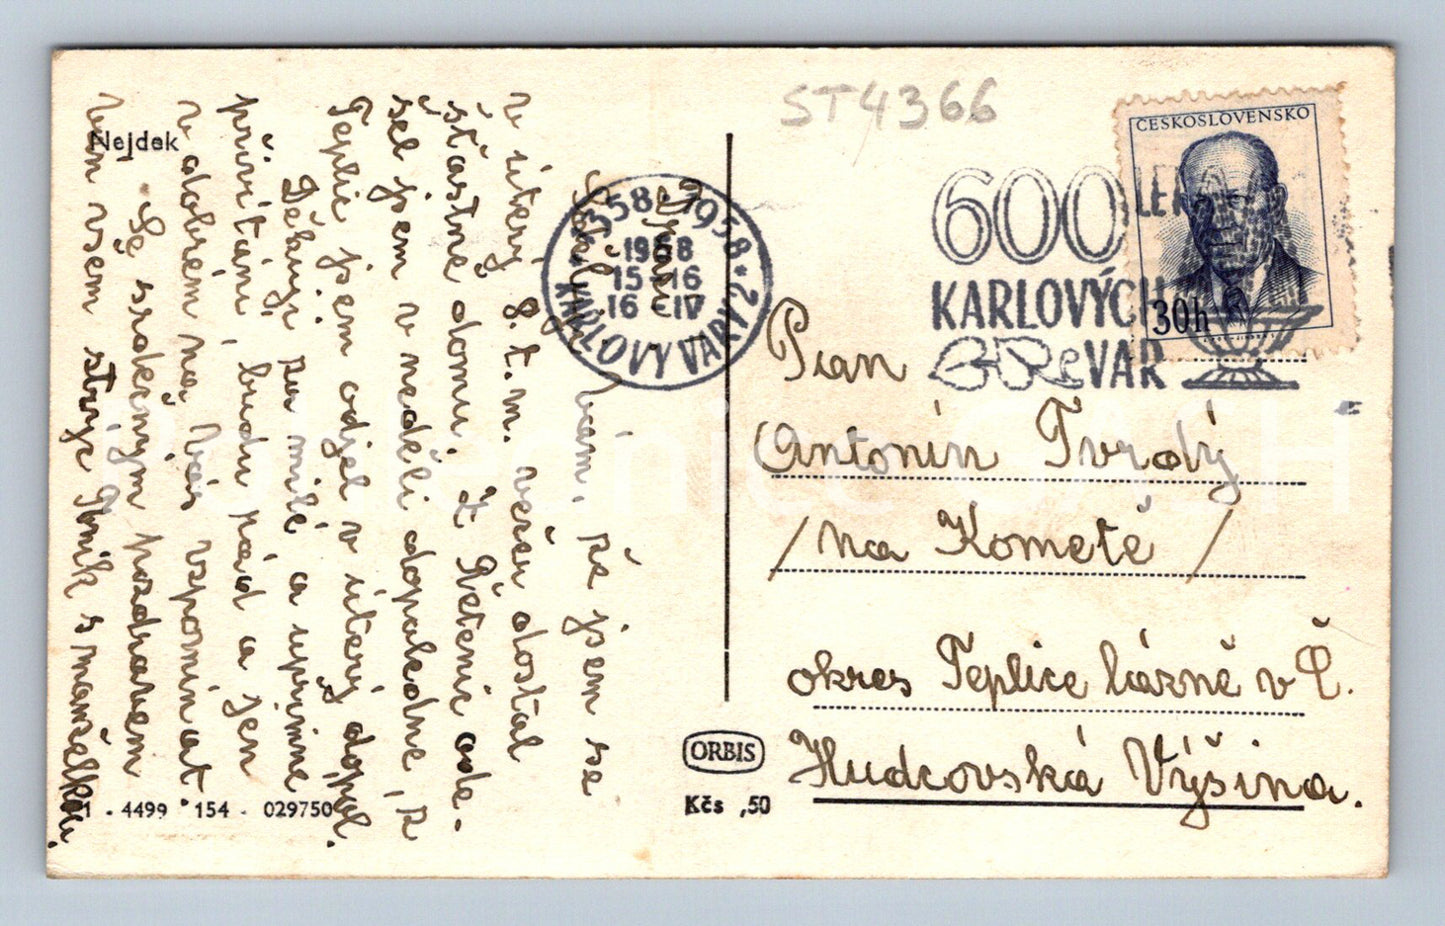 Nejdek
ST4366
ČESKOSLOVENSKO
30h
600 LET
KARLOVÝCH
VAR
1358 · 1958
1958
15-16
16 -IV
KARLOVY VARY 2
Drazí
Sděluji Vám, že jsem se
v úterý 8.t.m. večer dostal
šťastně domu. Z Řetenic ode-
šel jsem v neděli dopoledne, z
Teplic jsem odjel v úterý dopol.
Děkuji za milé a upřimne
přivítání, budu rád a jen
v dobrém na Vás vzpomínat.
Se srdečným pozdravem
Vám všem strýc s manželkou.
1 - 4499 · 154 - 029750
ORBIS
Kčs ,50
Pan
Antonín Tvrdý
/na Kometě /
okres Teplice lázně v Č.
Hudcovská Výšina.